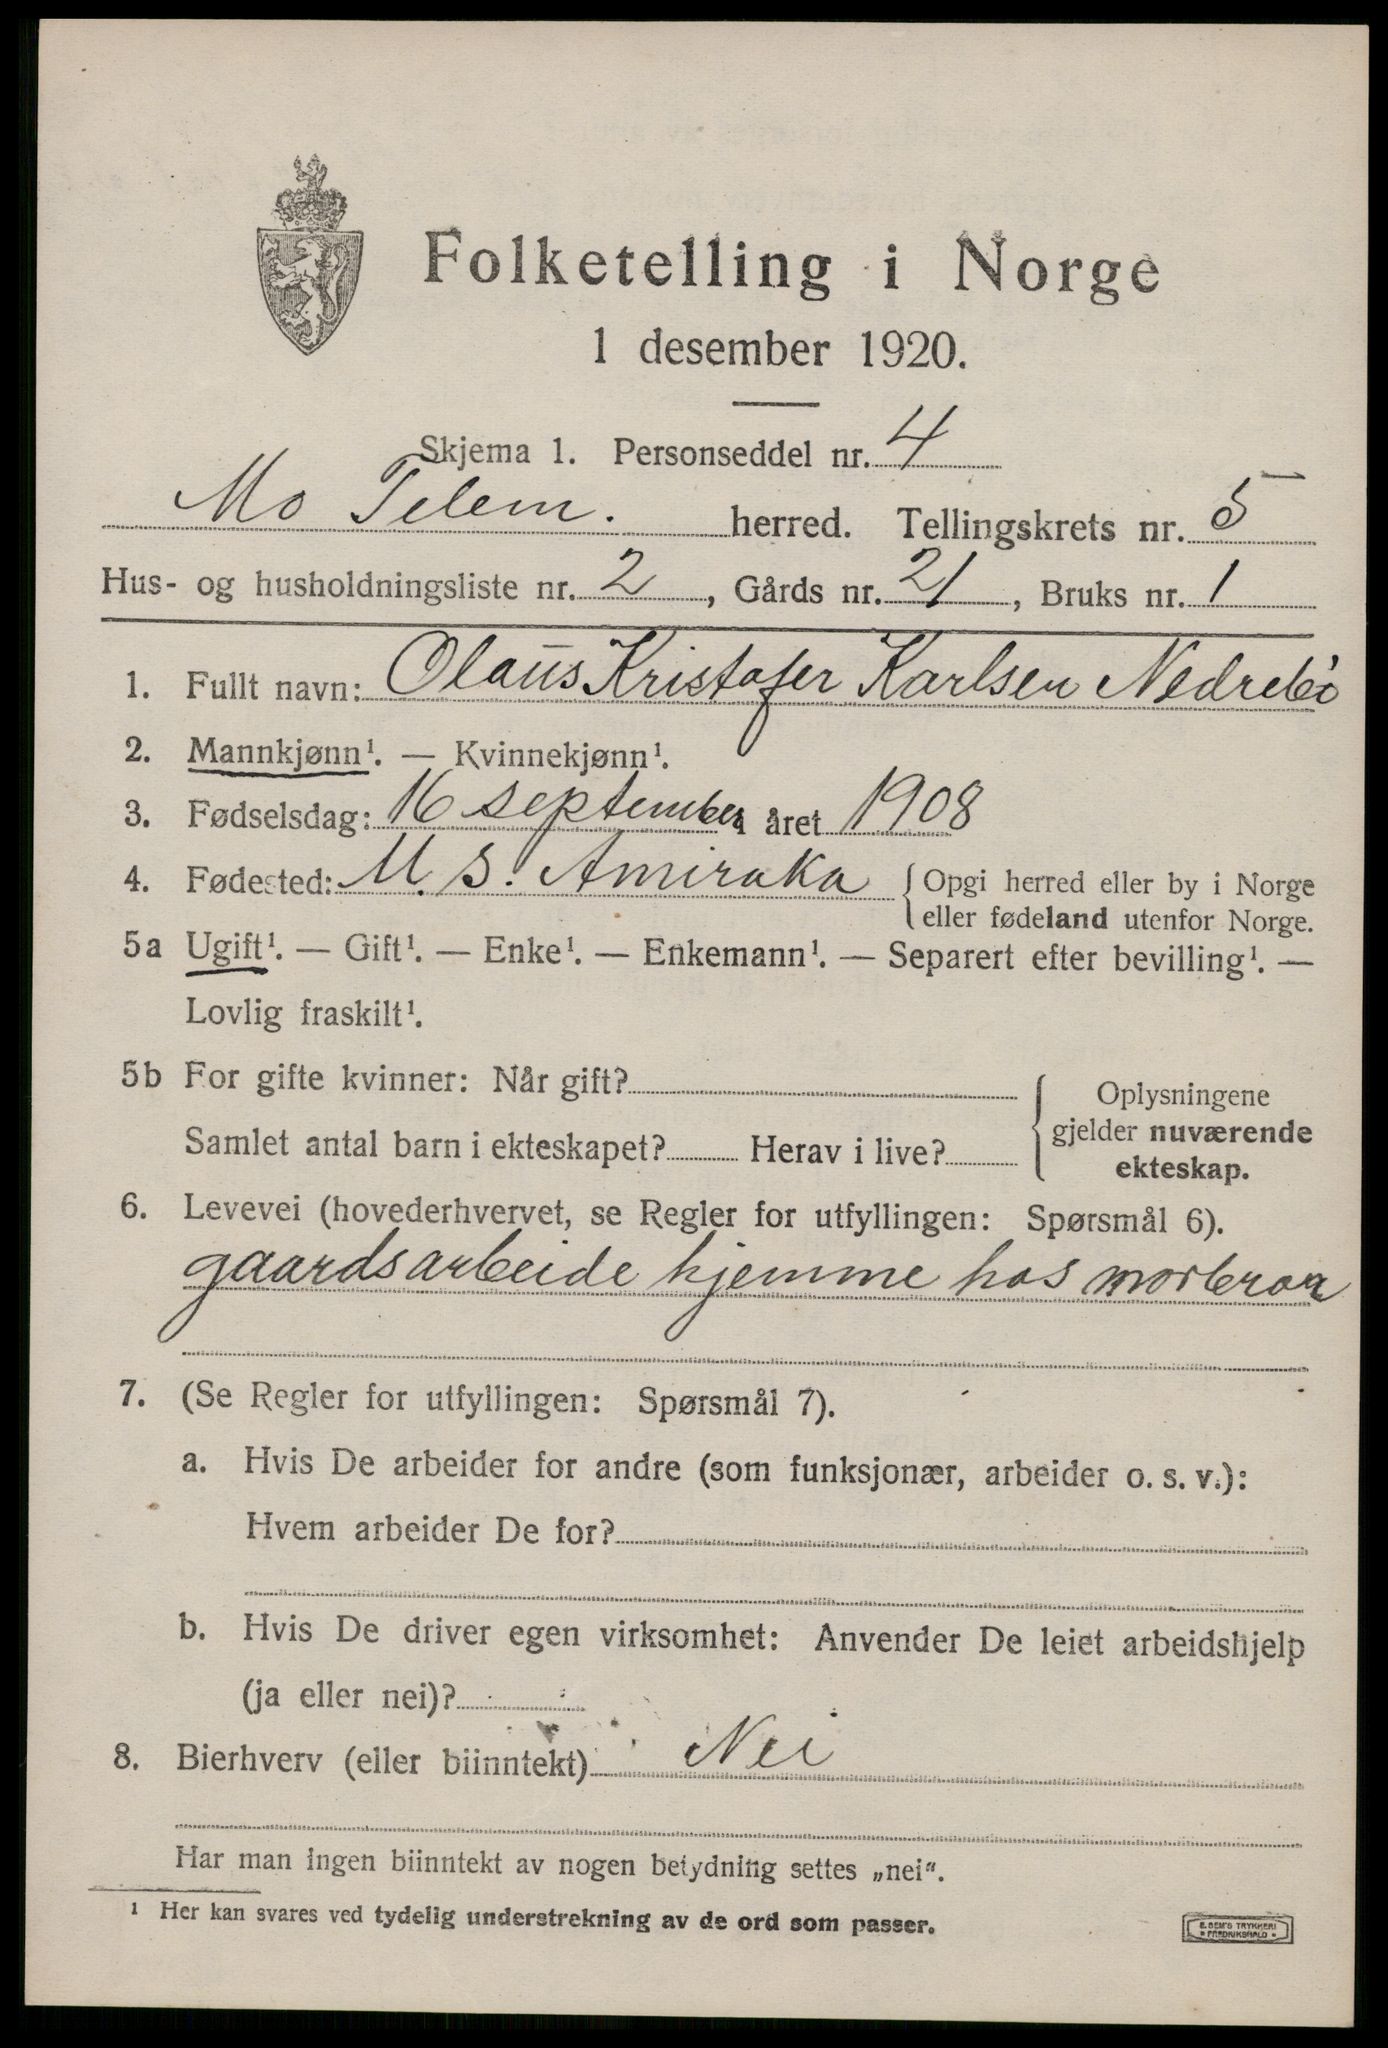 Folketelling i Norge
1 desember 1920.
Skjema 1. Personseddel nr. 4
Mo Telem. herred. Tellingskrets nr. 5
Hus- og husholdningsliste nr. 2, Gårds nr. 21, Bruks nr. 1
1. Fullt navn: Olaus Kristofer Karlsen Nedrebö
2. Mannkjønn¹. — Kvinnekjønn¹.
3. Fødselsdag: 16 september i året 1908
4. Fødested: U. S. Amiraka { Opgi herred eller by i Norge
eller fødeland utenfor Norge.
5a Ugift¹. — Gift¹. — Enke¹. — Enkemann¹. — Separert efter bevilling¹. —
Lovlig fraskilt¹.
5b For gifte kvinner: Når gift? { Oplysningene
gjelder nuværende
Samlet antal barn i ekteskapet? Herav i live?
ekteskap.
6. Levevei (hovederhvervet, se Regler for utfyllingen: Spørsmål 6).
gaardsarbeide hjemme hos morbror
7. (Se Regler for utfyllingen: Spørsmål 7).
a. Hvis De arbeider for andre (som funksjonær, arbeider o. s. v.):
Hvem arbeider De for?
b. Hvis De driver egen virksomhet: Anvender De leiet arbeidshjelp
(ja eller nei)?
8. Bierhverv (eller biinntekt) Nei
Har man ingen biinntekt av nogen betydning settes „nei“.
¹ Her kan svares ved tydelig understrekning av de ord som passer.
E. SEM'S TRYKKERI
FREDRIKSHALD